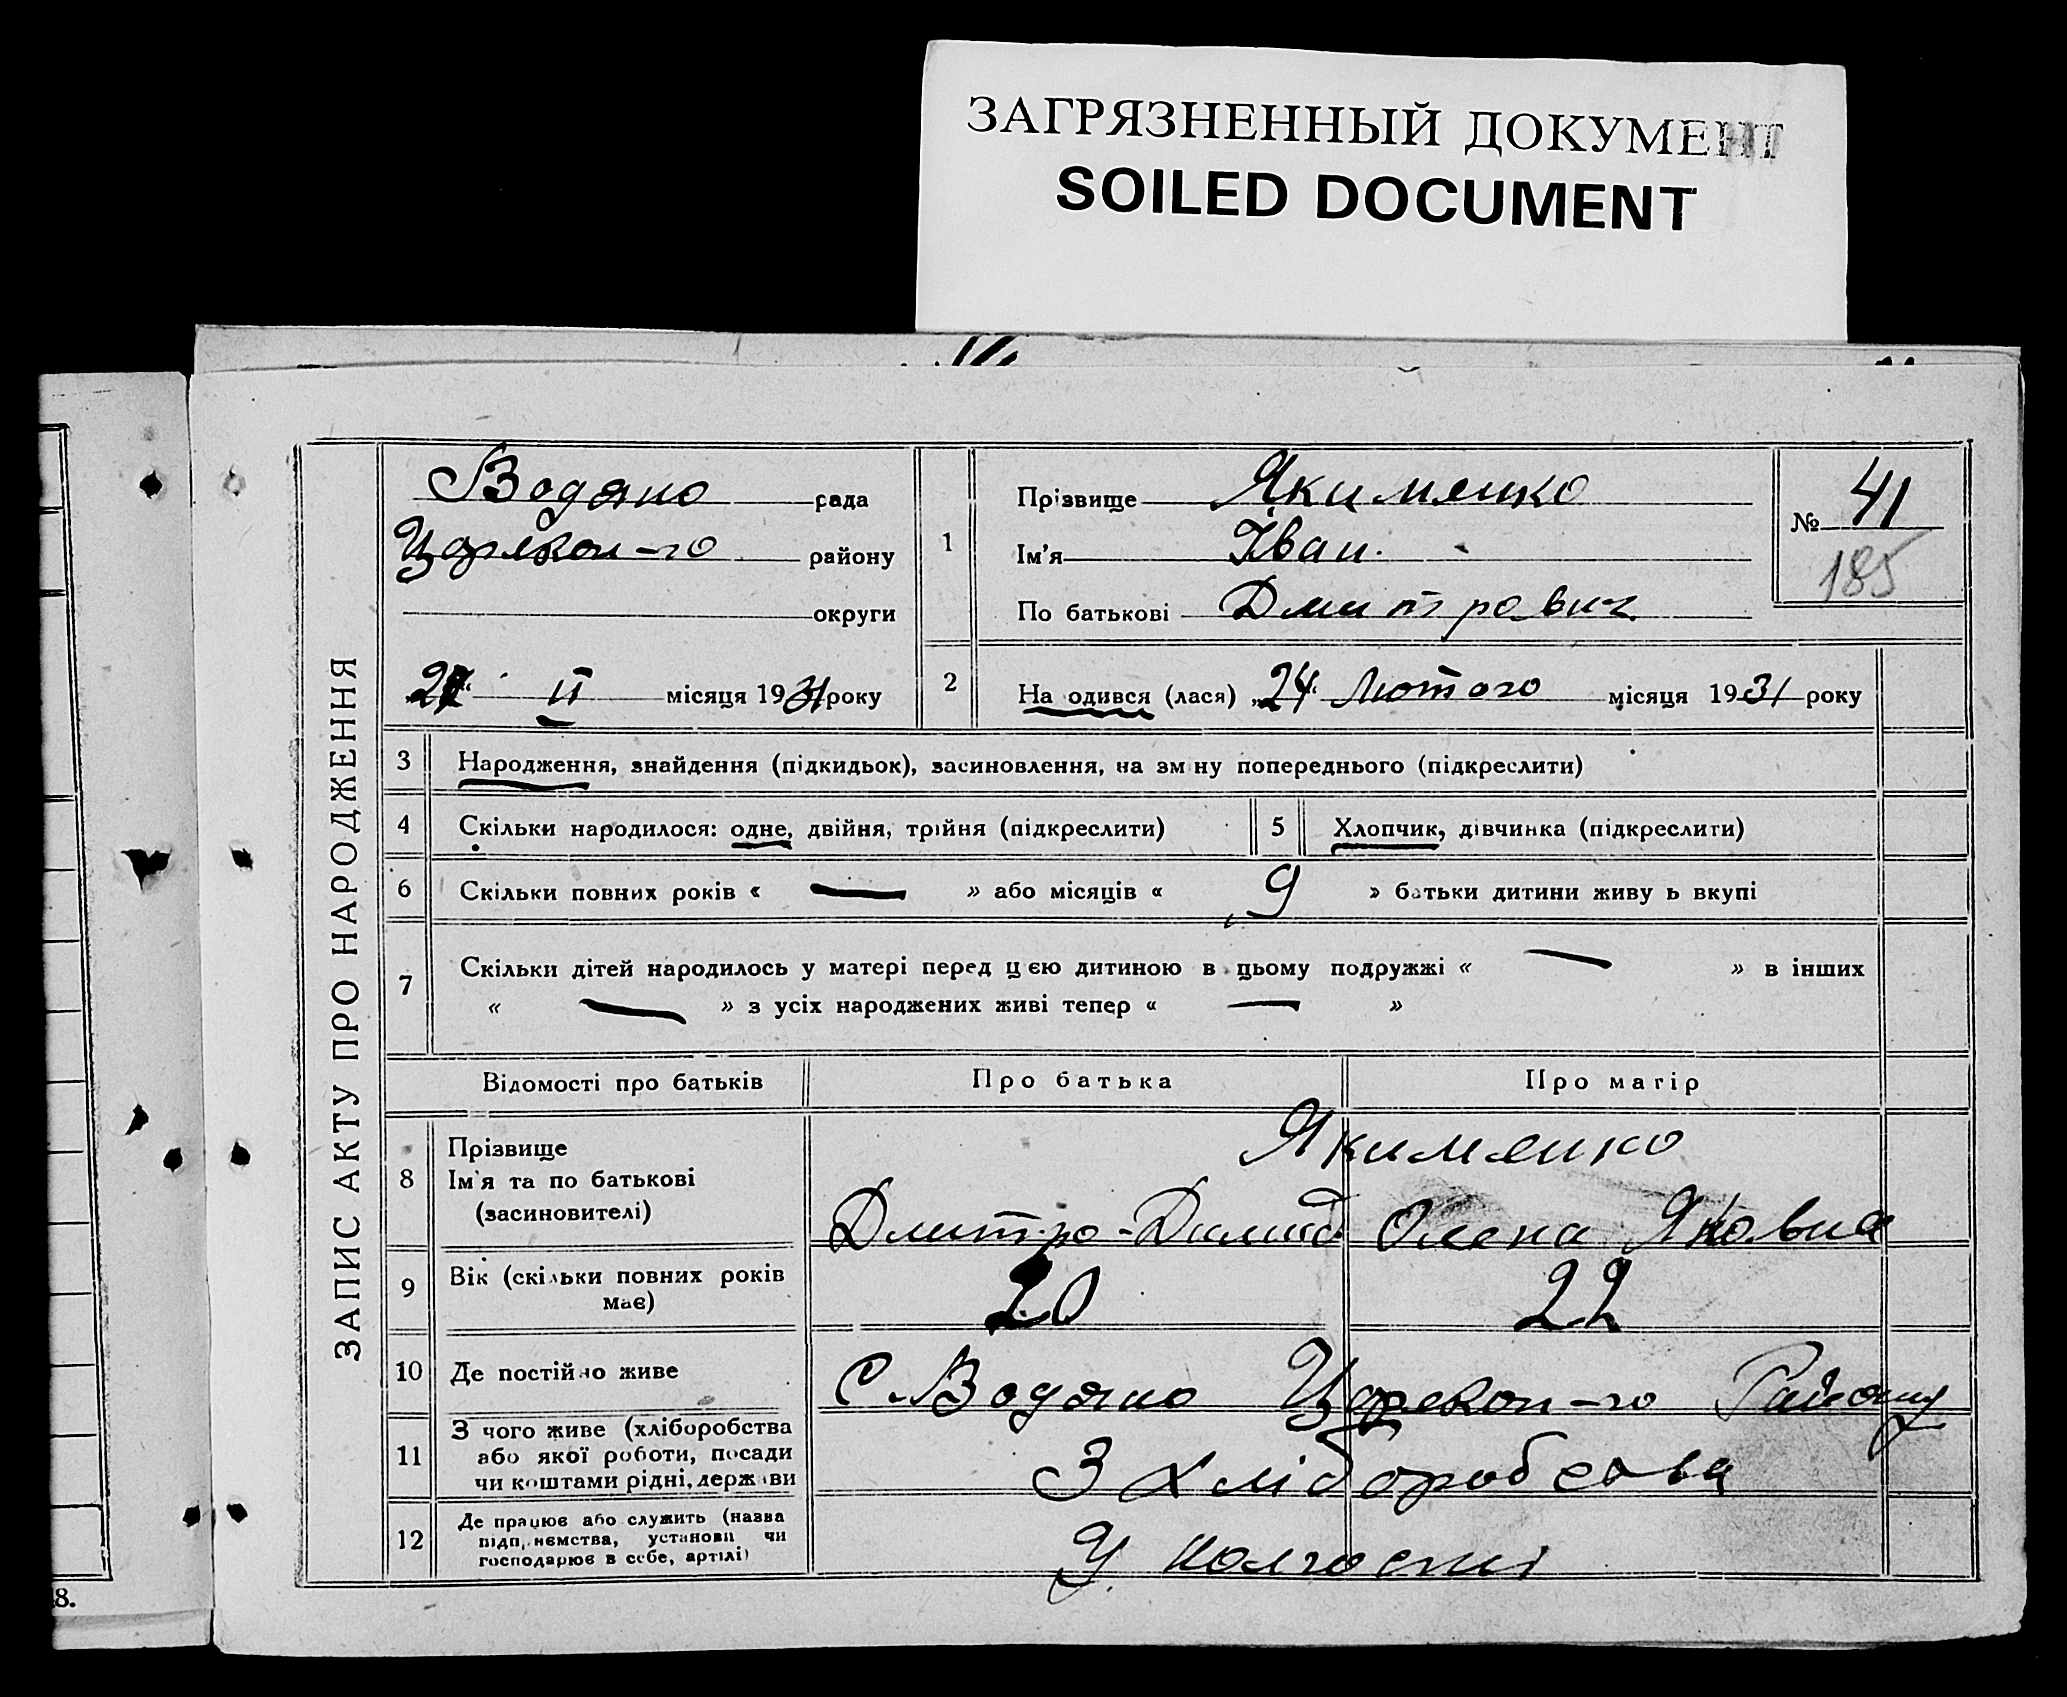 ЗАГРЯЗНЕННЫЙ ДОКУМЕНТ
SOILED DOCUMENT
ЗАПИС АКТУ ПРО НАРОДЖЕННЯ
Водяно рада
Царекон-го району
округи
ІІ місяця 1931 року
1 Прізвище Якименко
Ім'я Іван.
По батькові Дмитрович
№ 41
185
2 На одився (лася) „24“ Лютого місяця 1931 року
3 Народження, знайдення (підкидьок), засиновлення, на зм ну попереднього (підкреслити)
4 Скільки народилося: одне, двійня, трійня (підкреслити) 5 Хлопчик, дівчинка (підкреслити)
6 Скільки повних років « — » або місяців « 9 » батьки дитини живу ь вкупі
7 Скільки дітей народилось у матері перед цією дитиною в цьому подружжі « — » в інших
« — » з усіх народжених живі тепер « — »
Відомості про батьків Про батька Про матір
8 Прізвище
Ім'я та по батькові
(засиновителі)
Якименко
Дмитро Олена Яковна
9 Вік (скільки повних років
має)
20 22
10 Де постійно живе С. Водяно Царекон-го Району
11 З чого живе (хліборобства
або якої роботи, посади
чи коштами рідні, держави
З хліборобства
12 Де працює або служить (назва
підп, иємства, установи чи
господарює в себе, артілі)
У колгоспі
8.